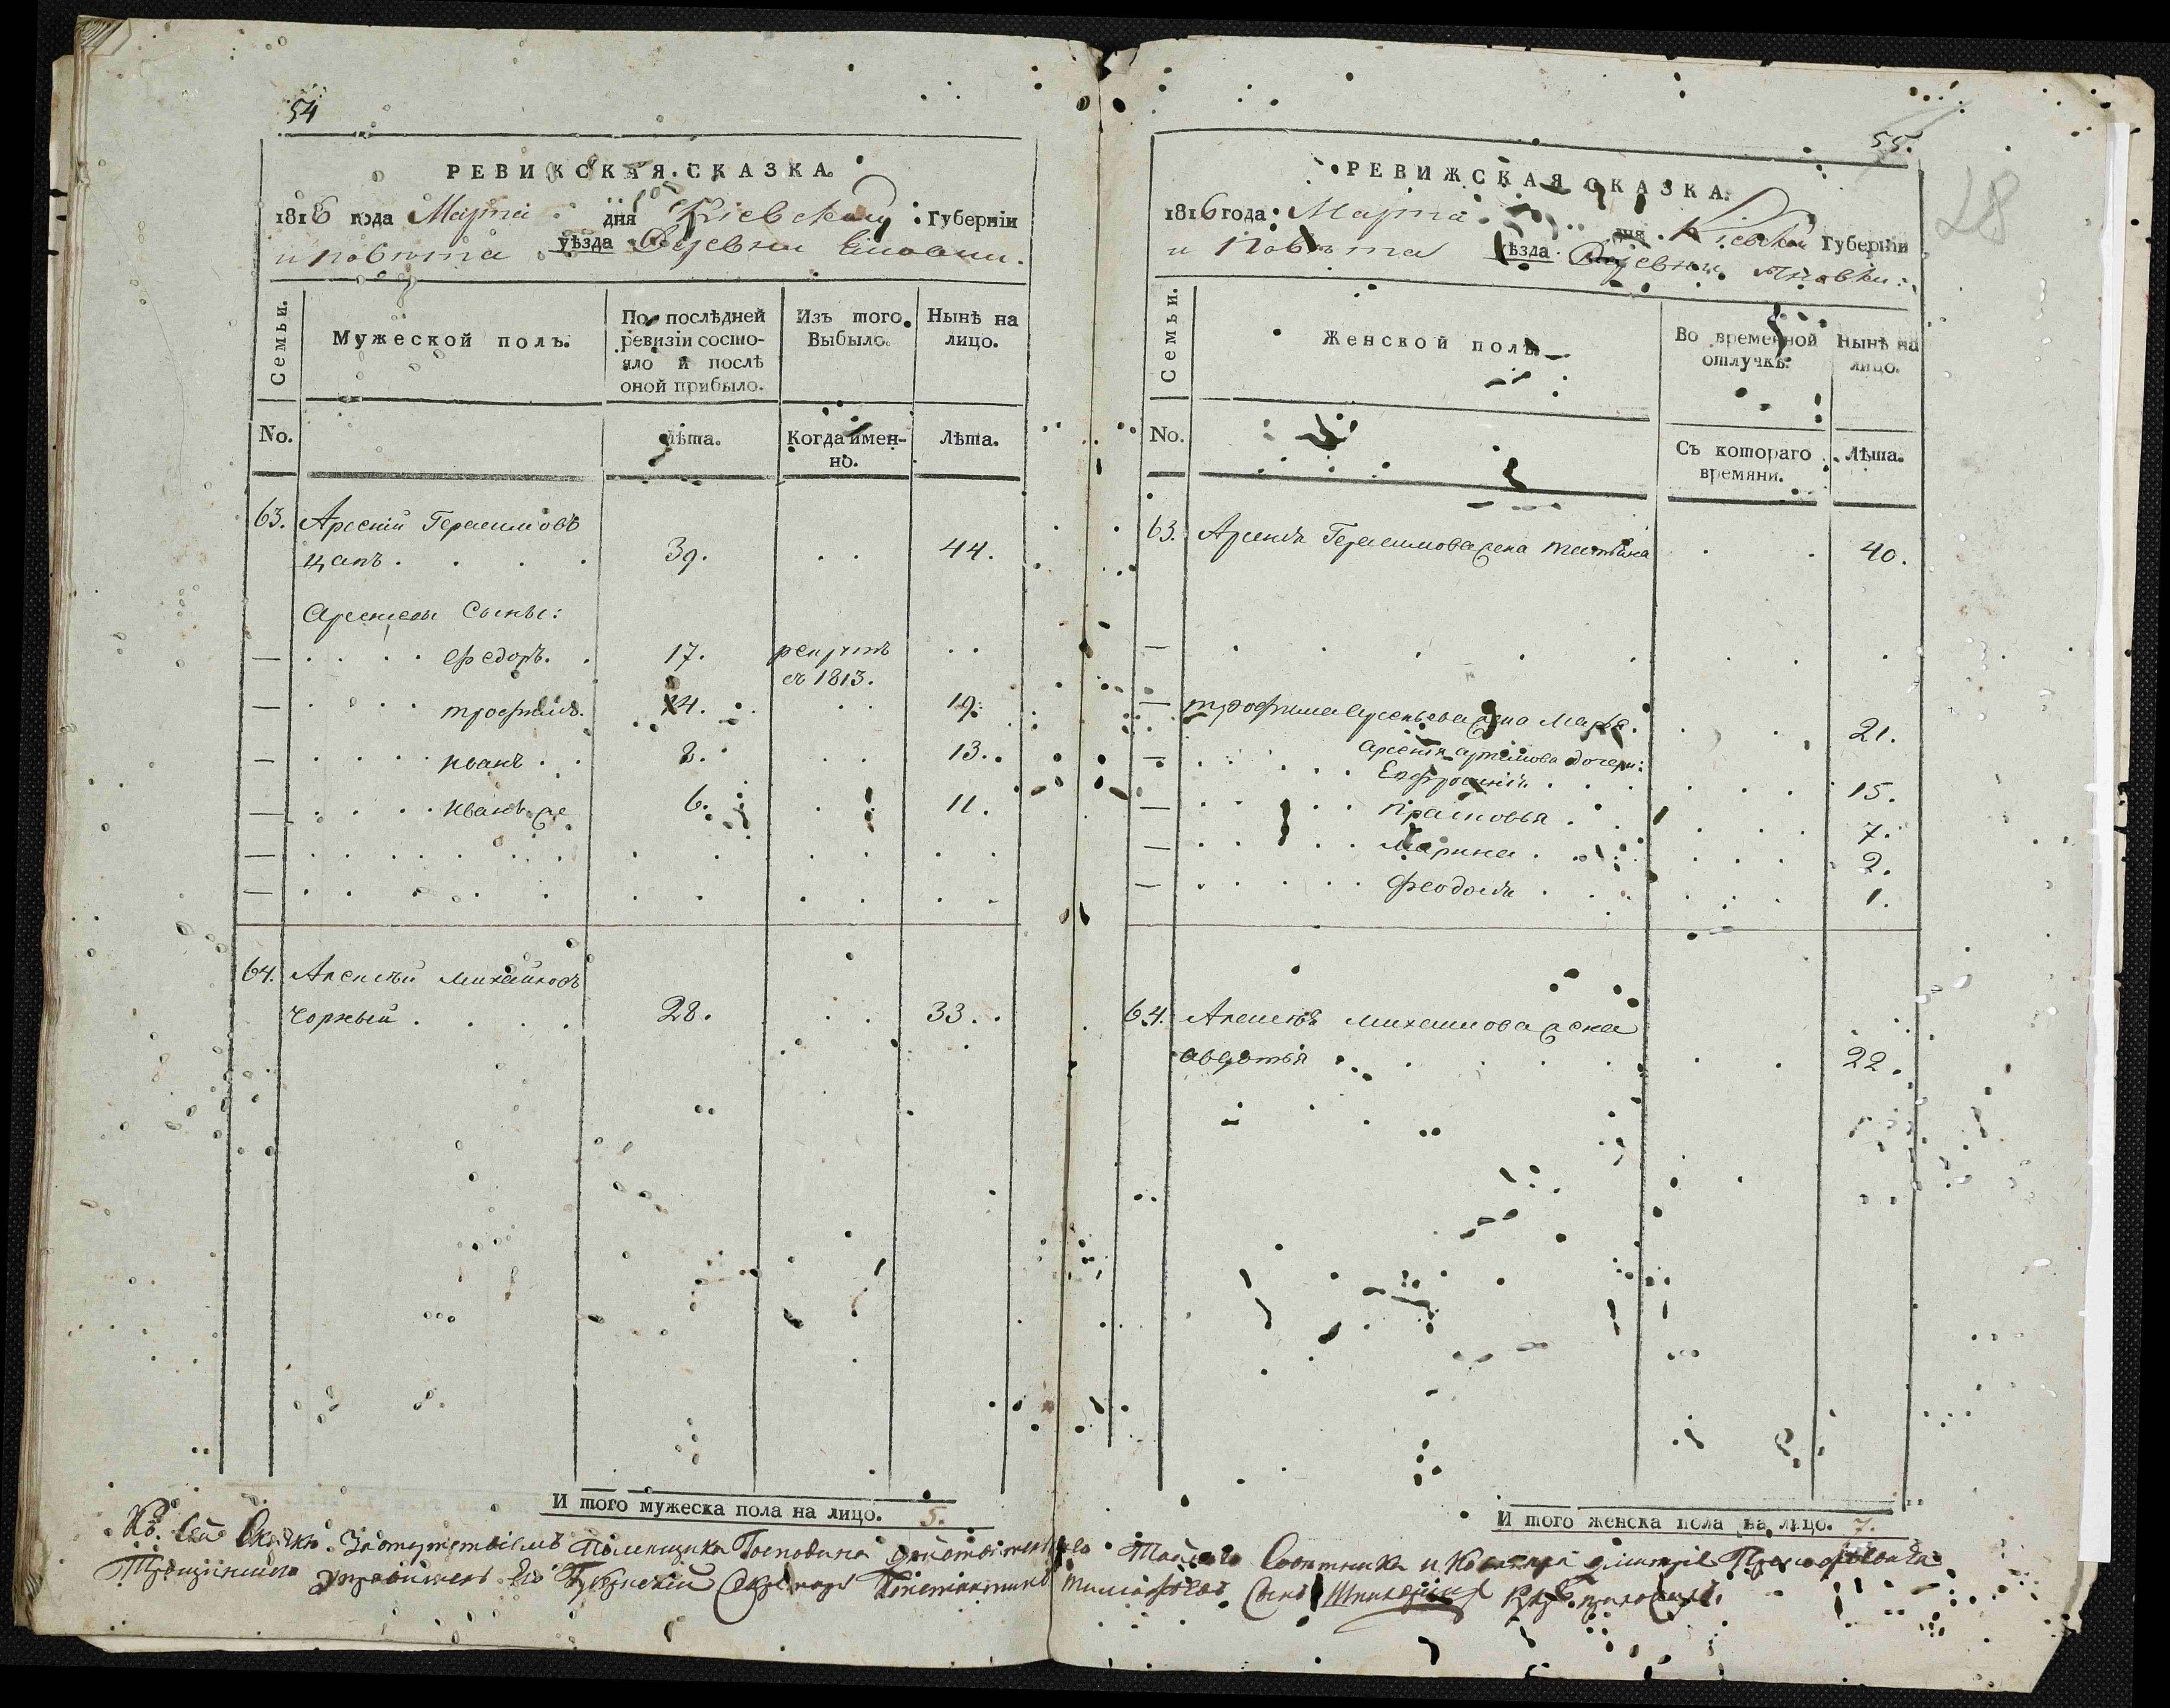 54
РЕВИЖСКАЯ СКАЗКА.
1816 года Марта дня Кіевской Губерніи
и повѣта уѣзда Деревни
Семьи.
Мужеской полъ.
По послѣдней ревизіи состо-
яло и послѣ оной прибыло.
Изъ того Выбыло.
Нынѣ на лицо.
No.
Лѣта.
Когда имен-
но.
Лѣта.
63. Арсений Герасимовъ
Цапъ . . . . 39. . . 44.
Арсениевы Сыны:
— . . . . Федоръ. . 17. рекрутъ . .
съ 1813.
— . . . . трофимъ. 14. . . 19.
— . . . . иванъ . . 8. . . 13.
— . . . . иванъ же 6. . . 11.
—
—
64. Алексѣй Михайловъ
Чорный . . . . 28. . . 33.
И того мужеска пола на лицо. 5.
55.
28
РЕВИЖСКАЯ СКАЗКА.
1816 года Марта дня Кіевской Губерніи
и Повѣта уѣзда Деревни Яновки.
Семьи.
Женской полъ
Во временной отлучкѣ.
Нынѣ на лицо.
No.
Съ котораго времяни.
Лѣта.
63. Арсения Герасимова жена татияна . . 40.
—
— трофима Арсеньева жена Марья. . . 21.
— Арсения дочери:
Ефросиния . . . 15.
— Прасковья . . . 7.
— Марина . . . 2.
— Феодосия . . . 1.
64. Алексѣя михайлова жена
авдотья . . . . 22.
И того женска пола на лицо. 7.
Къ Сей Скаскѣ За отсутствіемъ помещика Господина действительнаго Тайнаго Советника и Кавалера Дмитрія Прокофьевича
Трощинскаго Губернскій Секретарь Константинъ Сынъ руку приложилъ.